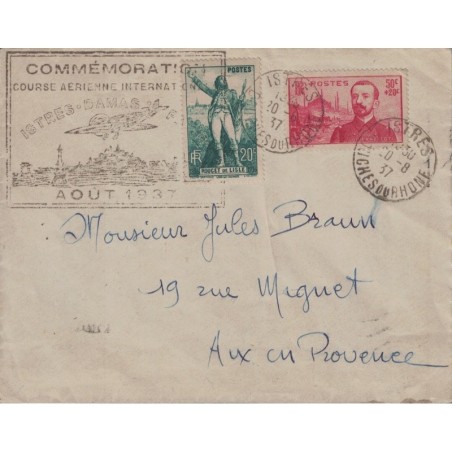 COMMÉMORATI
COURSE AÉRIENNE INTERNAT
ISTRES-DAMAS
AOUT 1937
POSTES
RF
20c
ROUGET DE LISLE
ISTRES
37
BOUCHES DU RHONE
POSTES
50c
+20c
ISTRES
20-8
37
BOUCHES DU RHONE
Monsieur Jules Braun
19 rue Mignet
Aix en Provence